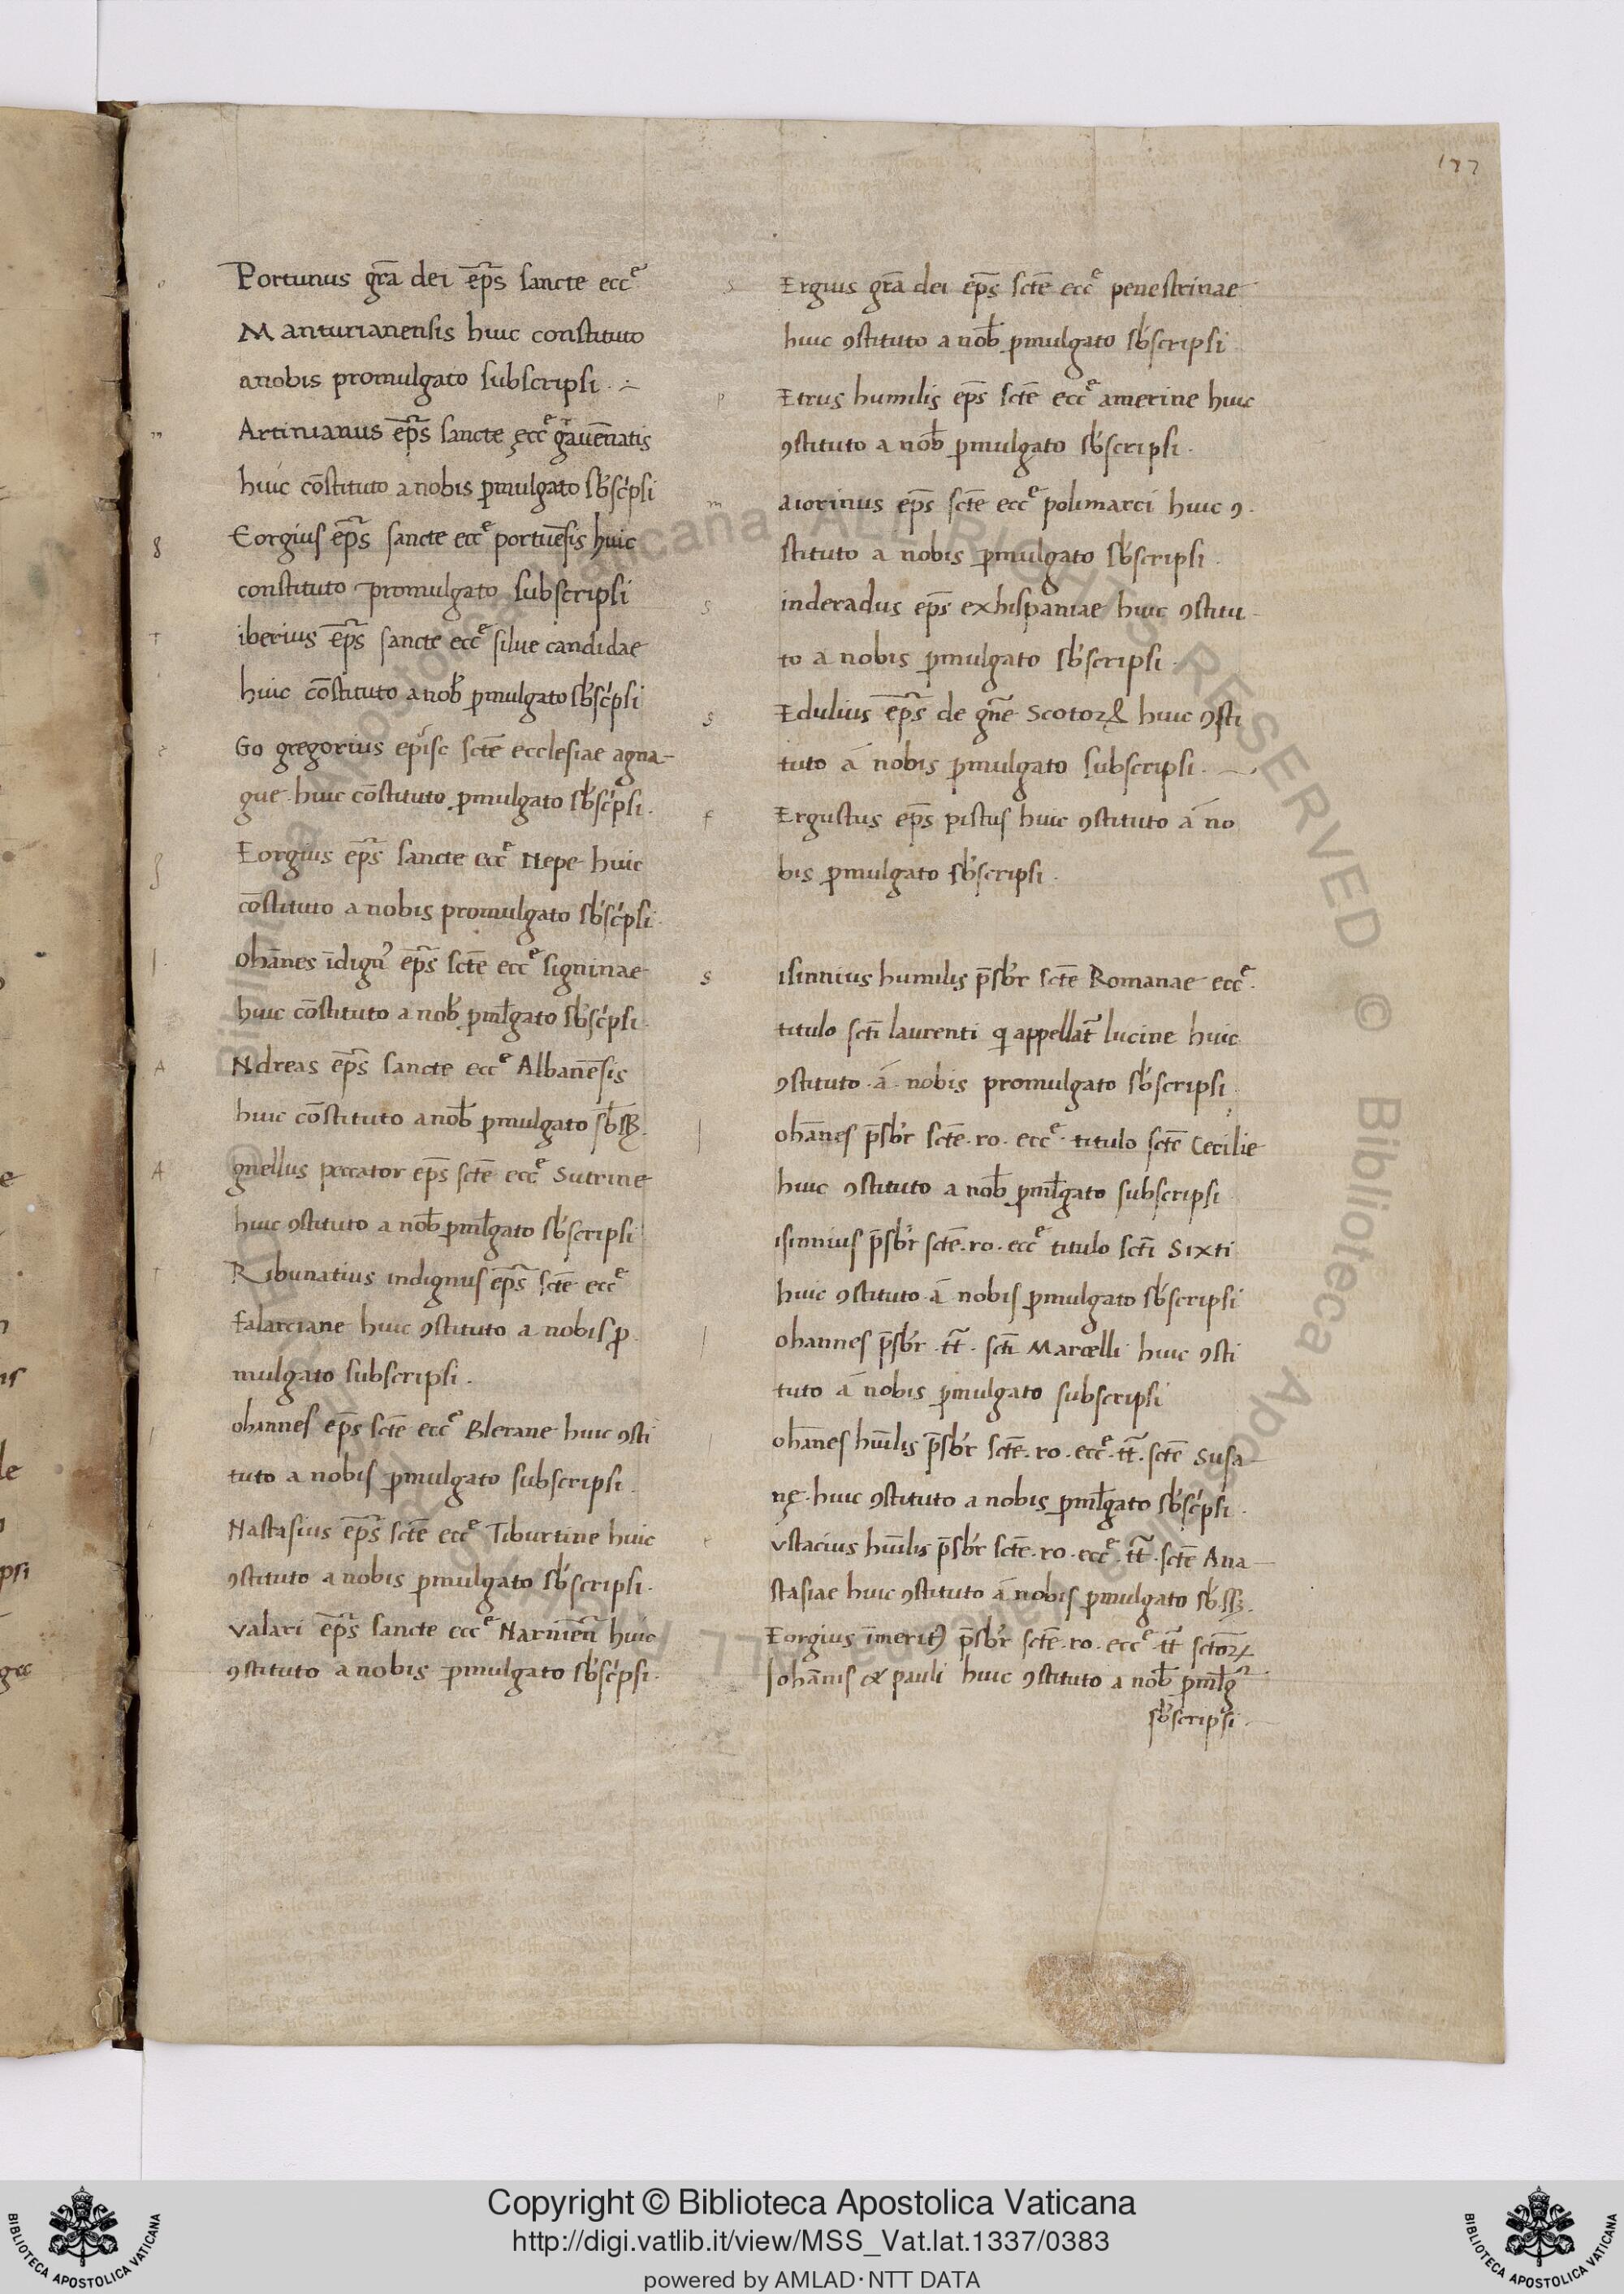 177
o Portunus gr̄a dei ep̄s sancte ecc̄e
Manturianensis huic constituto
a nobis promulgato subscripsi
m Artinianus ep̄s sancte ęcc̄e gravēnatis
huic cōstituto a nobis p̄mulgato sb́sc̓psi
g Eorgius ep̄s sancte ecc̄e portuēsis huic
constituto promulgato subscripsi
T iberius ep̄s sancte ecc̄e silue candidae
huic cōstituto a nob̄ p̄mulgato sb́sc̓psi
e Go gregorius episc sctē ecclesiae agna-
gue huic cōstituto p̄mulgato sb́sc̓psi.
g Eorgius ep̄s sancte ecc̄e Nepe huic
cōstituto a nobis promulgato sb́sc̓psi.
I ohānes īdign᾽ ep̄s sctē ecc̄e signinae
huic cōstituto a nob̄ p̄ml̄gato sb́sc̓psi.
A Ndreas ep̄s sancte ecc̄e Albanēsis
huic cōstituto a nob̄ p̄mulgato sb̄ss.
A gnellus peccator ep̄s sctē ecc̄e Sutrine
huic ꝯstituto a nob̄ p̄ml̄gato sb́scripsi
T Ribunatius indignus ep̄s sctē ecc̄e
falarciane huic ꝯstituto a nobis p̄
mulgato subscripsi.
I ohannes ep̄s sctē ecc̄e Blerane huic ꝯsti
tuto a nobis p̄mulgato subscripsi.
Nastasius ep̄s sctē ecc̄e Tiburtine huic
ꝯstituto a nobis p̄mulgato sb́scripsi.
valari ep̄s sancte ecc̄e Narniēn̄ huic
ꝯstituto a nobis p̄mulgato sb́sc̓psi.
S Ergius gr̄a dei ep̄s sctē ecc̄e penestrinae
huic ꝯstituto a nob̄ p̄mulgato sb́scripsi
p Etrus humilis ep̄s sctē ecc̄e amerine huic
ꝯstituto a nob̄ p̄mulgato sb́scripsi.
m aiorinus ep̄s sctē ecc̄e polimarci huic ꝯ.
stituto a nobis p̄mulgato sb́scripsi.
S inderadus ep̄s exhispaniae huic ꝯstitu-
to a nobis p̄mulgato sb́scripsi.
S Edulius ep̄s de gn̄e Scotoꝝ & huic ꝯsti
tuto á nobis p̄mulgato subscripsi.
f Ergustus ep̄s pistus huic ꝯstituto á no
bis p̄mulgato sb́scripsi.
S isinnius humilis p̄sb́r sctē Romanae ecc̄e.
titulo scti laurenti q̄ appellat̄ lucine huic
ꝯstituto á nobis promulgato sb́scripsi.
I ohānes p̄sb́r sctē. ro. ecc̄e. titulo sctē Cecilie
huic ꝯstituto a nob̄ p̄ml̄gato subscripsi
isinnius p̄sb́r sctē. ro. ecc̄e titulo sctī Sixti
huic ꝯstituto á nobis p̄mulgato sb́scripsi
I ohannes p̄sb́r. tt̄. sctī Marcelli huic ꝯsti
tuto á nobis p̄mulgato subscripsi
I ohānes hūilis p̄sb́r sctē. ro. ecc̄e. tt̄. sctē Susa-
nę. huic ꝯstituto a nobis p̄ml̄gato sb́sc̓psi.
e vstacius hūilis p̄sb́r sctē. ro. ecc̄e. tt̄. sctē Ana-
stasiae huic ꝯstituto á nobis p̄mulgato sb́.ss.
Eorgius īmerit᾽ p̄sb́r sctē. ro. ecc̄e tt̄ sctōꝝ
Iohānis & pauli huic ꝯstituto a nob̄ p̄ml̄ḡ
sb́scripsi.
© Biblioteca Apostolica Vaticana ALL RIGHTS RESERVED © Biblioteca Apostolica Vaticana ALL RIGHTS RESERVED
Copyright © Biblioteca Apostolica Vaticana
http://digi.vatlib.it/view/MSS_Vat.lat.1337/0383
powered by AMLAD·NTT DATA
BIBLIOTECA APOSTOLICA VATICANA
BIBLIOTECA APOSTOLICA VATICANA